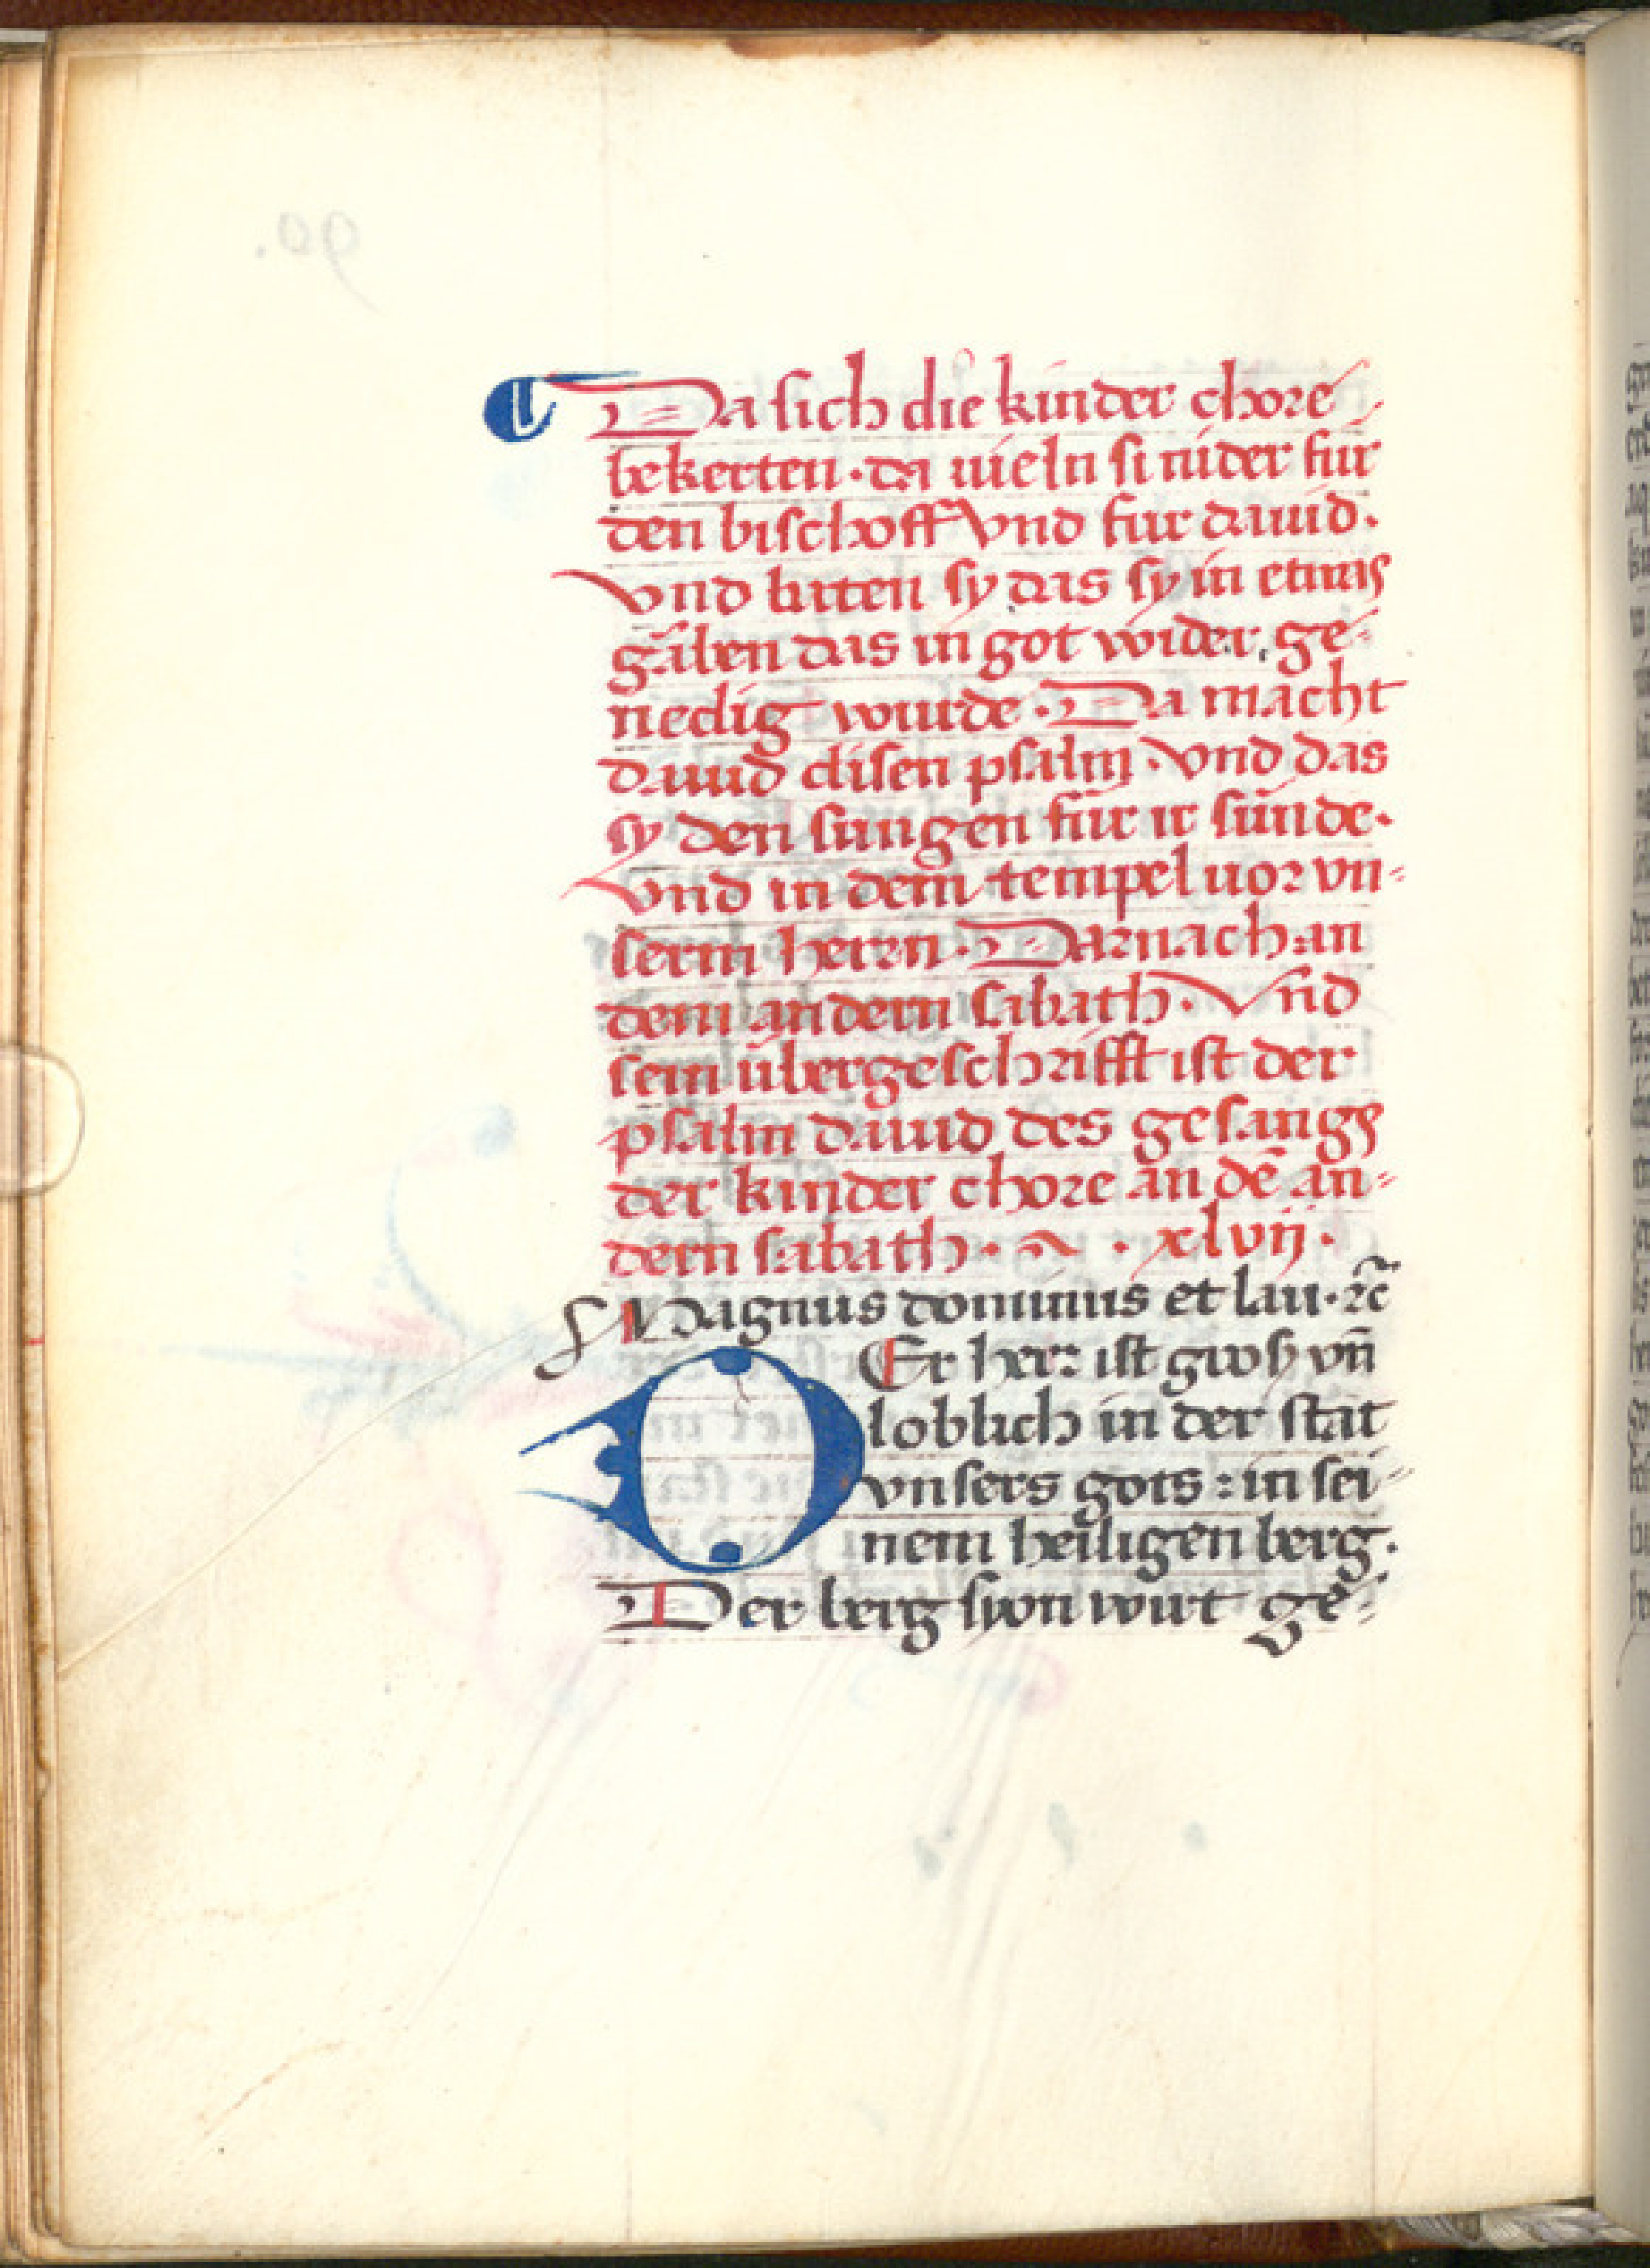 Da sich die kinder chore
bekerten · da vieln si nider für
den bischoff Vnd fur dauid ·
Vnd baten sy das sy in etwas
gäben das in got wider ge⸗
nedig wurde · Da macht
dauid disen psalm · Vnd das
sy den sungen für ir sünde ·
Vnd in dem tempel uor vn⸗
serm herrn · Darnach an
dem andern sabath · Vnd
sein übergeschrifft ist der
psalm dauid des gesangs
der kinder chore an dē an⸗
dern sabath · xlvij ·
Magnus dominus et lau · ⁊c̄
DEr herr ist groß vn̄
loblich in der stat
vnsers gots : in sei⸗
nem heiligen berg ·
Der berg syon wirt ge⸗